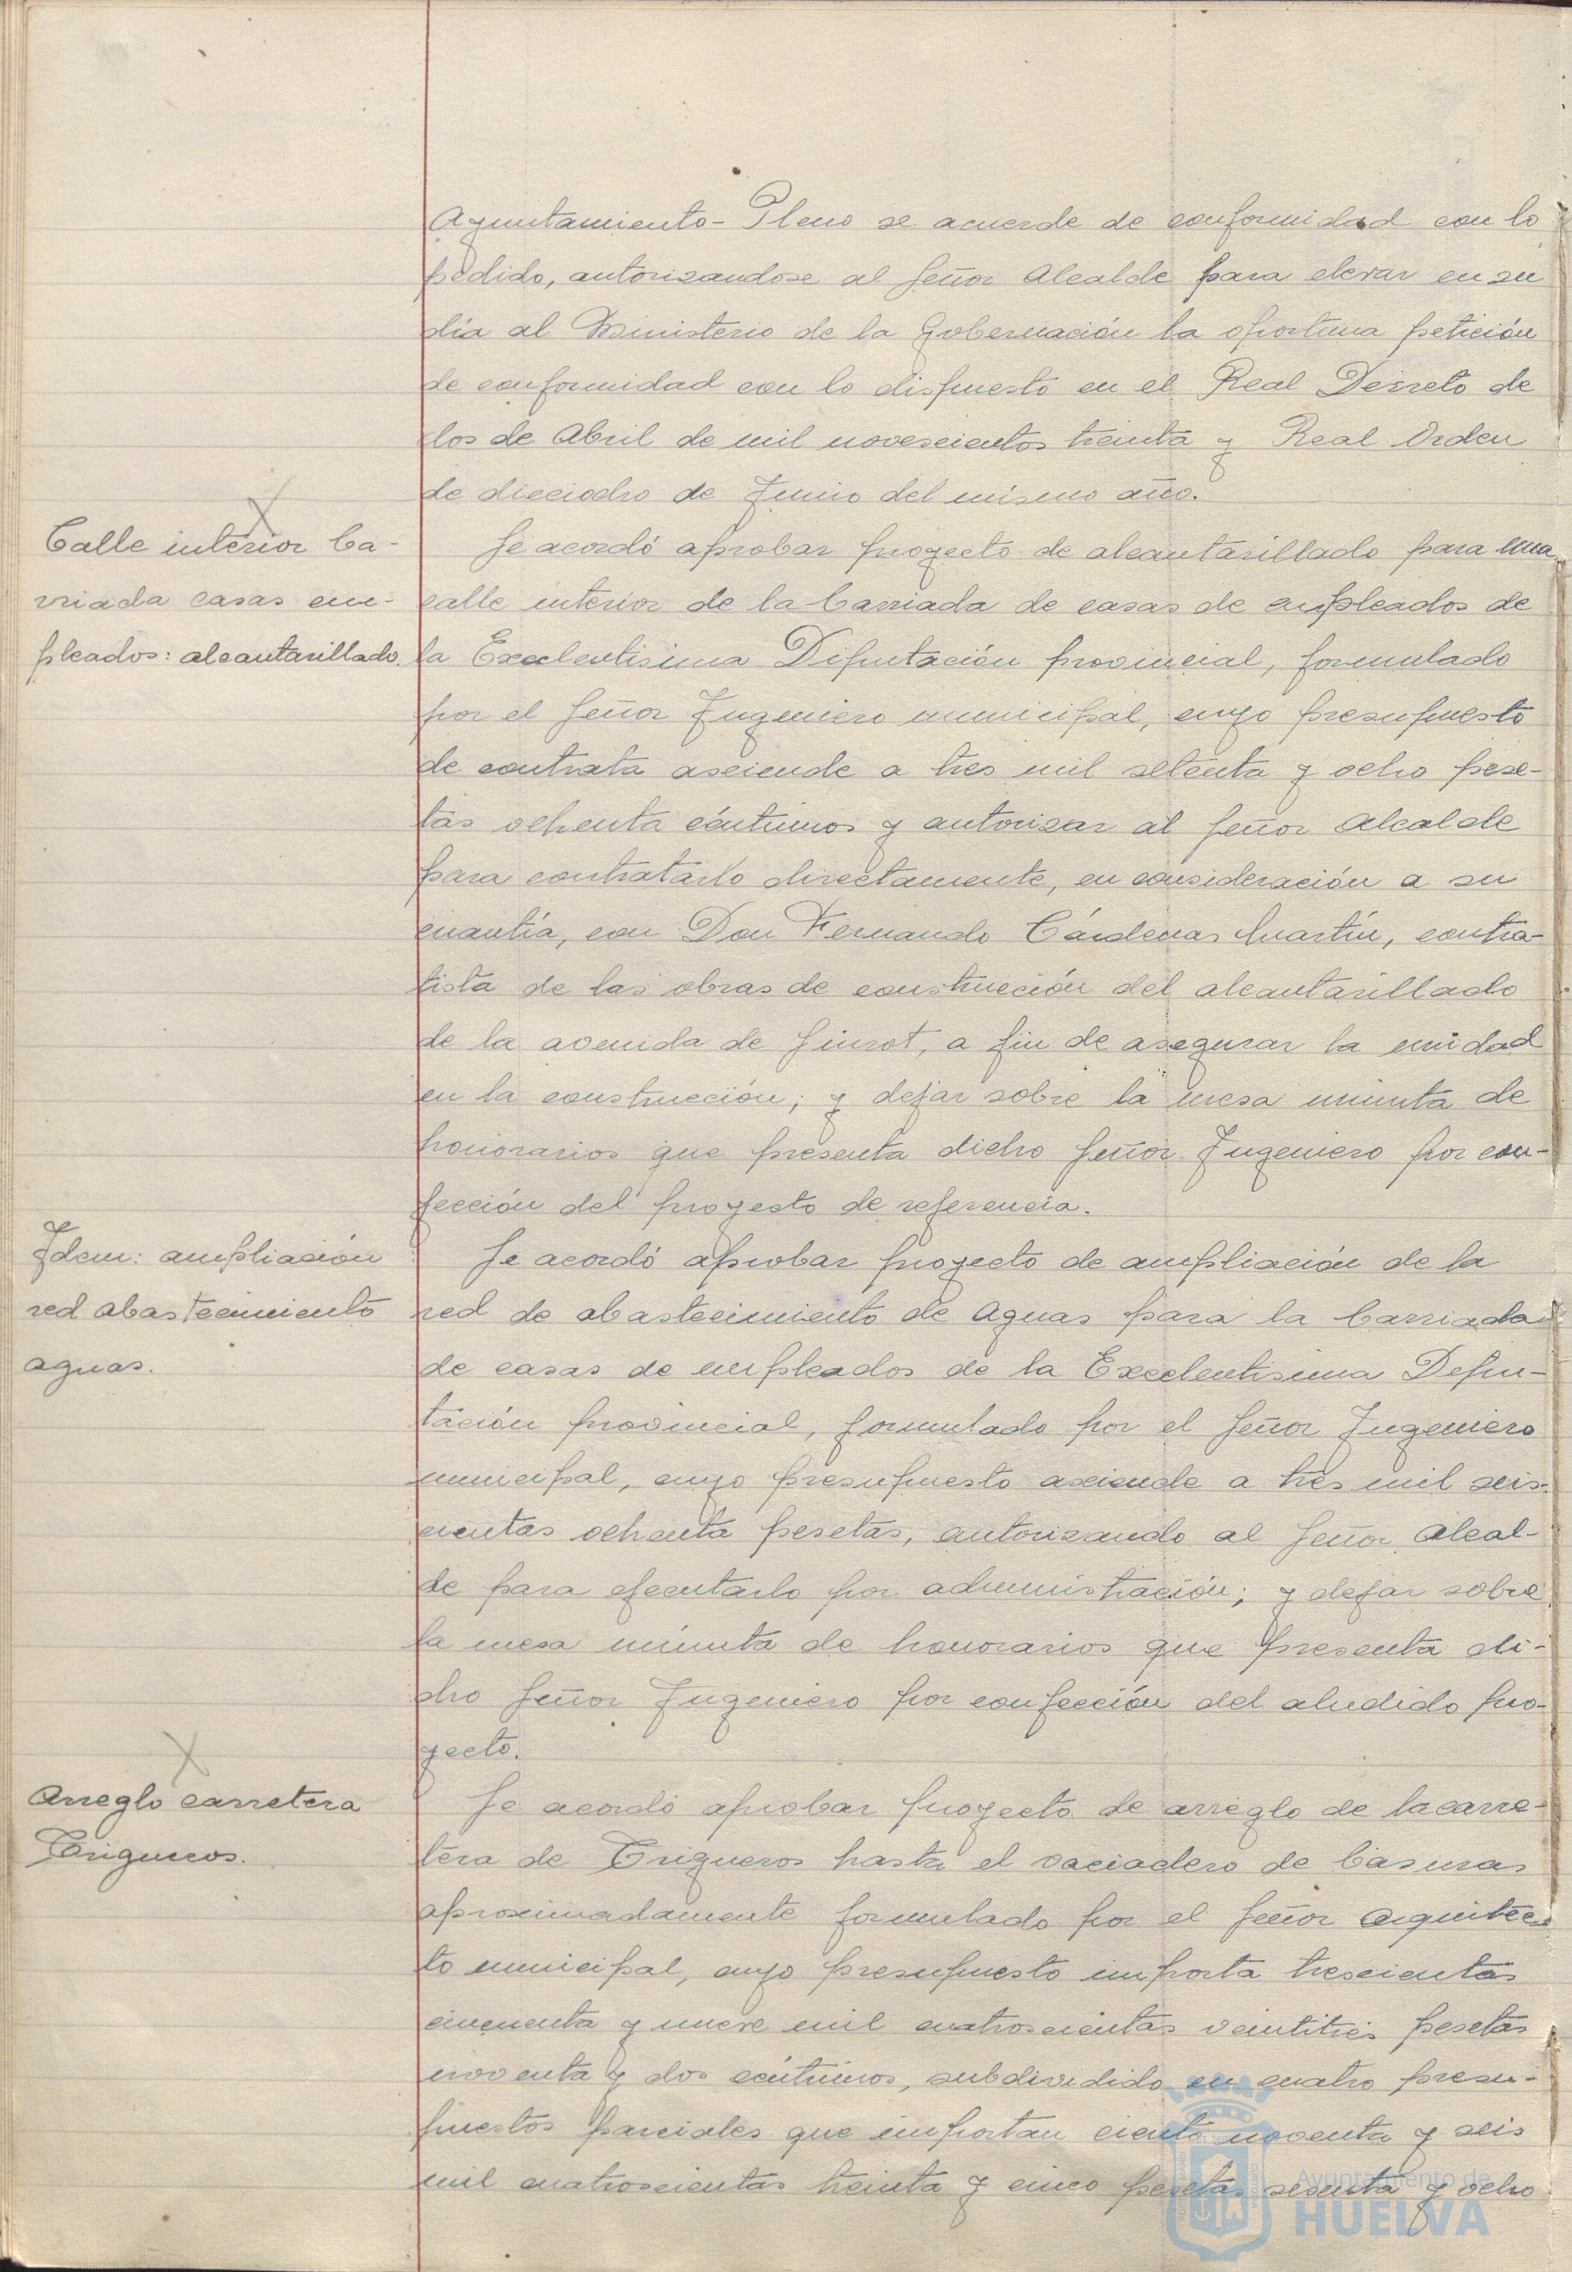 Ayuntamiento-Pleno se acuerde de conformidad con lo
pedido, autorizandose al Señor Alcalde para elevar en su
día al Ministerio de la Gobernación la oportuna petición
de conformidad con lo dispuesto en el Real Decreto de
dos de Abril de mil novescientos treinta y Real Orden
de dieciocho de Junio del mismo año.
Calle interior ba-
rriada casas em-
pleados: alcantarillado.
Se acordó aprobar proyecto de alcantarillado para una
calle interior de la barriada de casas de empleados de
la Excelentisima Diputación provincial, formulado
por el Señor Ingeniero municipal, cuyo presupuesto
de contrata asciende a tres mil setenta y ocho pese-
tas ochenta céntimos y autorizar al Señor Alcalde
para contratarlo directamente, en consideración a su
cuantía, con Don Fernando Cárdenas Martín, contra-
tista de las obras de construcción del alcantarillado
de la avenida de Siurot, a fin de asegurar la unidad
en la construcción; y dejar sobre la mesa minuta de
honorarios que presenta dicho Señor Ingeniero por con-
fección del proyecto de referencia.
Idem: ampliación
red abastecimiento
aguas.
Se acordó aprobar proyecto de ampliación de la
red de abastecimiento de aguas para la barriada
de casas de empleados de la Excelentisima Depu-
tación provincial, formulado por el Señor Ingeniero
municipal, cuyo presupuesto asciende a tres mil seis-
cientas ochenta pesetas, autorizando al Señor Alcal-
de para ejecutarlo por administración; y dejar sobre
la mesa minuta de honorarios que presenta di-
cho Señor Ingeniero por confección del aludido pro-
yecto.
Arreglo carretera
Trigueros.
Se acordó aprobar proyecto de arreglo de la carre-
tera de Trigueros hasta el vaciadero de basuras
aproximadamente formulado por el Señor Arquitec-
to municipal, cuyo presupuesto importa trescientas
cincuenta y nueve mil cuatroscientas veintitrés pesetas
noventa y dos céntimos, subdividido en cuatro presu-
puestos parciales que importan ciento noventa y seis
mil cuatroscientas treinta y cinco pesetas sesenta y ocho
Ayuntamiento de
HUELVA